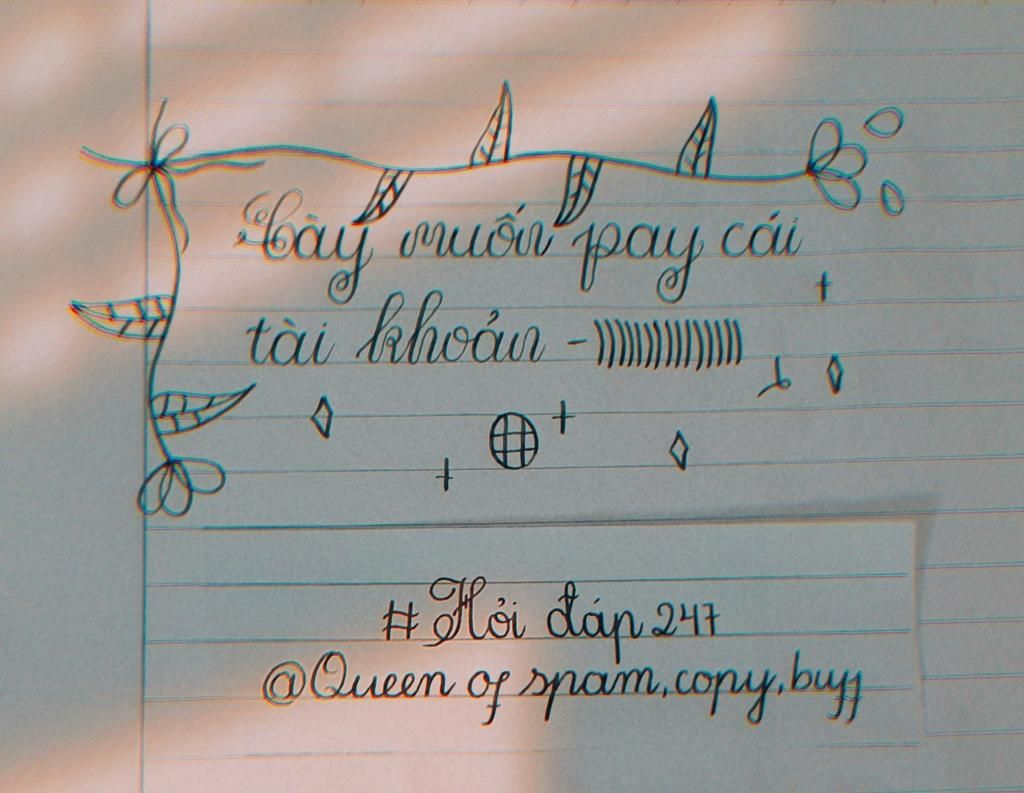 Cày muốn pay cái
tài khoản -
#Hỏi đáp 247
@Queen of spam,copy,buff